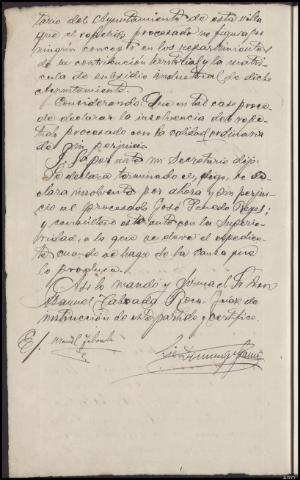 tario del Ayuntamiento de esta villa
que el referido procesado no figura por
ningún concepto en los repartimientos
de su contribución territorial y la matrí-
cula de subsidio industrial de dicho
Ayuntamiento.
Considerando Que en tal caso proce-
de declarar la insolvencia del refe-
rido procesado con la calidad ordinaria
de sin perjuicio
S.Sª por ante mi Secretario dijo:
Se declara terminado el
clara insolvente por ahora y sin perjui-
cio al procesado José Reyes;
y consúltese este auto con la Superio-
ridad, a la que se eleve el expedien-
te cuando se haga de la causa que
lo produce.
Así lo mandó y firma el Sr Don
Manuel Taboada Roca, Juez de
instrucción de este partido y certifico.
E/. Manuel Taboada